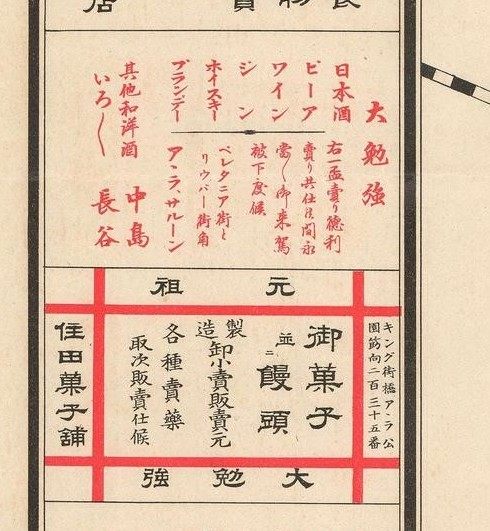 大勉強
日本酒
ビーア
ワイン
ジン
ホイスキー
ブランデー
其他和洋酒
いろ〱
右一盃賣り徳利
賣り共仕候間永
當〱御来駕
被下度候
ベレタニア街と
リウバー街角
アヽラ、サルーン
中島
長谷
元祖
キング街橋アヽラ公
園筋向二百三十五番
御菓子
並ニ饅頭
製造卸小賣販賣元
各種賣藥
取次販賣仕候
大勉強
住田菓子舗